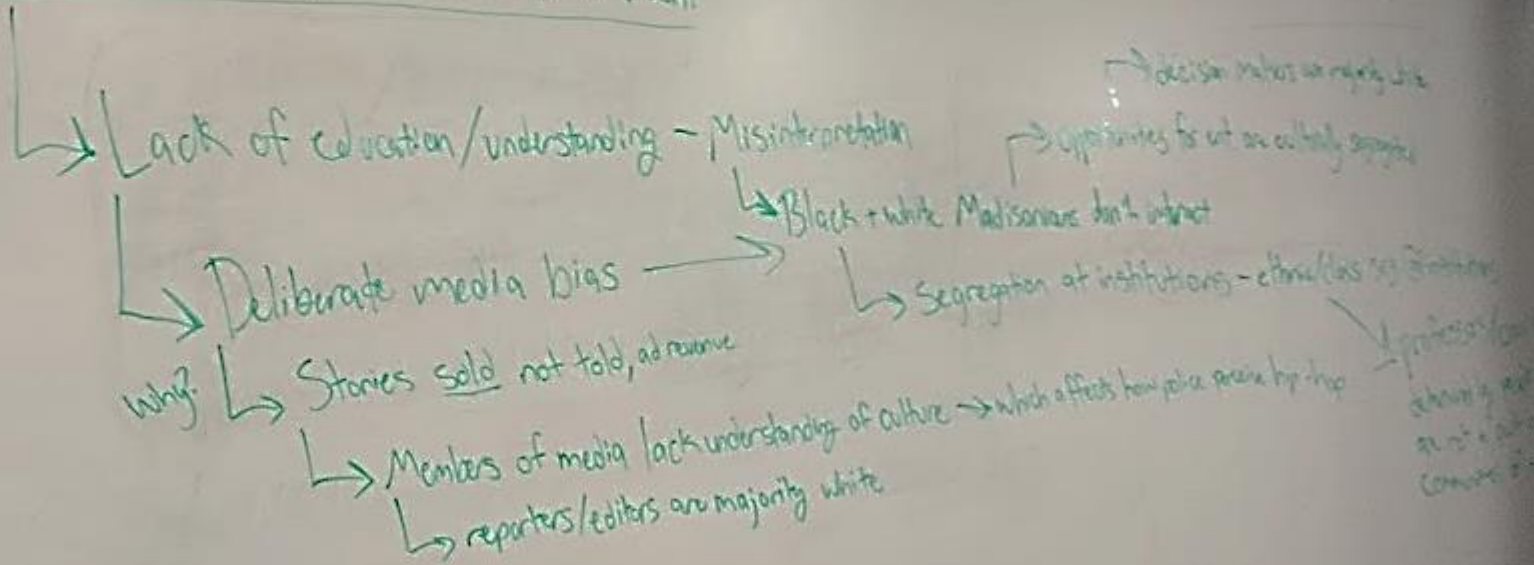 Lack of education/understanding - Misinterpretation
→ decision makers are majority white
→ opportunities for are culturally
↳ Black + white Madisonians don't interact
Deliberate media bias →
↳ Segregation at institutions - ethnic/class
why? Stories sold not told, ad revenue
Members of media lack understanding of culture → which affects how police perceive hip-hop
reporters/editors are majority white